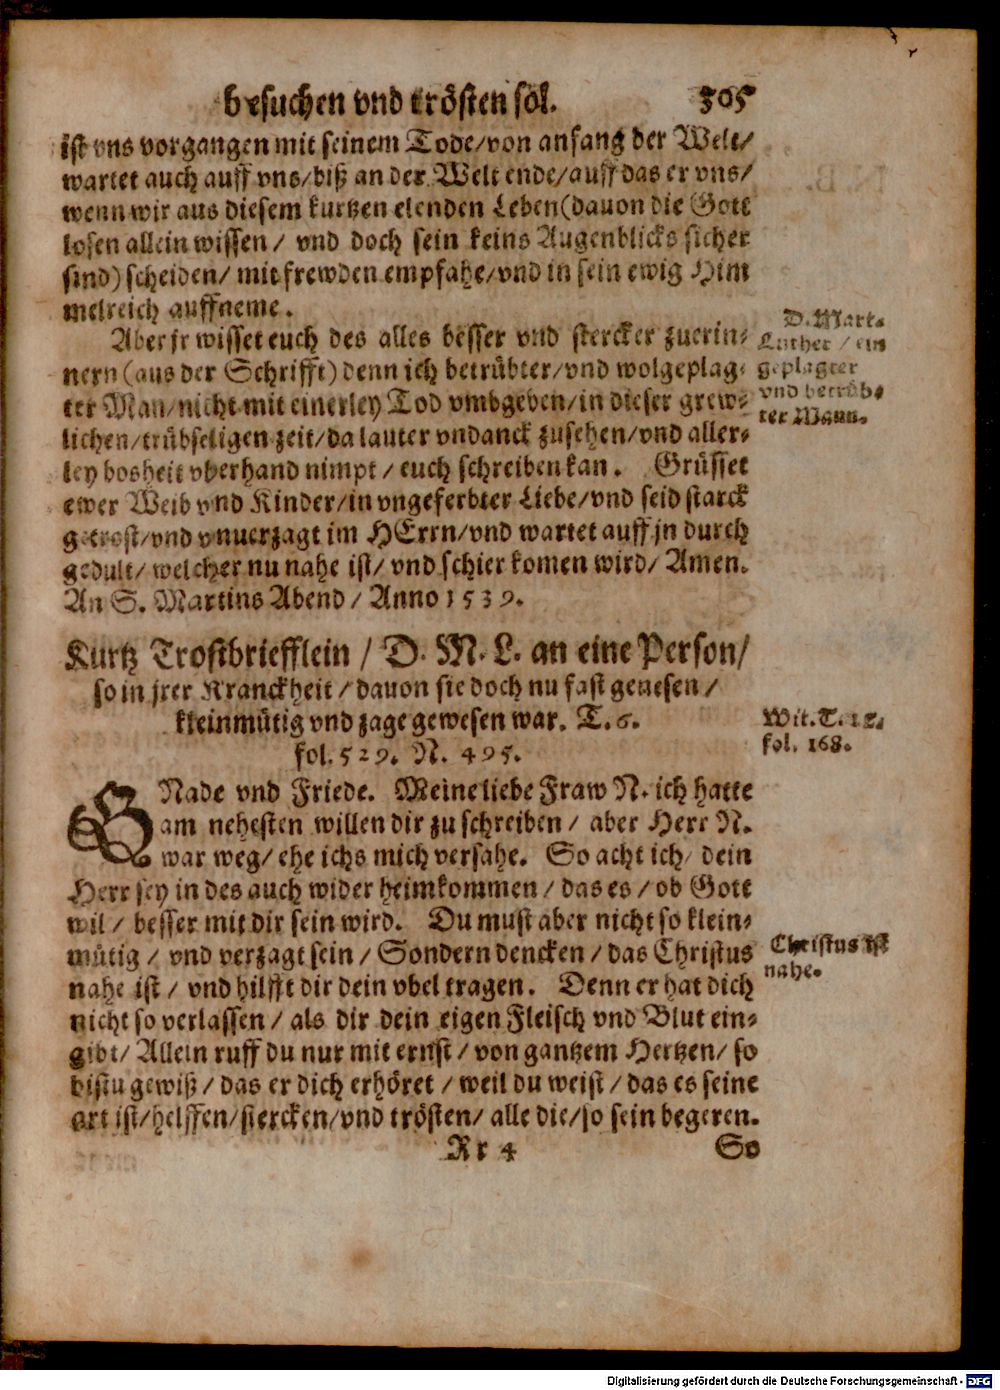 besuchen vnd trösten sol. 305
ist vns vorgangen mit seinem Tode/von anfang der Welt/
wartet auch auff vns/biß an der Welt ende/auff das er vns/
wenn wir aus diesem kurtzen elenden Leben(dauon die Gott
losen allein wissen/ vnd doch sein keins Augenblicks sicher
sind)scheiden/ mit frewden empfahe/vnd in sein ewig Him
melreich auffneme.
Aber jr wisset euch des alles besser vnd stercker zuerin-
nern(aus der Schrifft)denn ich betrübter/vnd wolgeplag-
ter Man/nicht mit einerley Tod vmbgeben/in dieser grew-
lichen/trübseligen zeit/da lauter vndanck zusehen/vnd aller-
ley bosheit vberhand nimpt/euch schreiben kan. Grüsset
ewer Weib vnd Kinder/in vngeferbter Liebe/vnd seid starck
getrost/vnd vnuerzagt im HErrn/vnd wartet auff jn durch
gedult/welcher nu nahe ist/ vnd schier komen wird/ Amen.
An S. Martins Abend/ Anno 1539.
D. Mart.
Luther/ ein
geplagter
vnd betrüb-
ter Mann.
Kurtz Trostbriefflein/ D. M. L. an eine Person/
so in jrer Kranckheit/dauon sie doch nu fast genesen/
kleinmütig vnd zage gewesen war. T. 6.
fol. 529. N. 495.
Wit. T. 12.
fol. 168.
GNade vnd Friede. Meine liebe Fraw N. ich hatte
am nehesten willen dir zu schreiben/ aber Herr N.
war weg/ ehe ichs mich versahe. So acht ich/ dein
Herr sey in des auch wider heimkommen/das es/ob Gott
wil/ besser mit dir sein wird. Du must aber nicht so klein-
mütig/ vnd verzagt sein/Sondern dencken/das Christus
nahe ist/ vnd hilfft dir dein vbel tragen. Denn er hat dich
nicht so verlassen/als dir dein eigen Fleisch vnd Blut ein-
gibt/Allein ruff du nur mit ernst/von gantzem Hertzen/ so
bistu gewiß/das er dich erhöret/weil du weist/das es seine
art ist/helffen/stercken/vnd trösten/ alle die/so sein begeren.
Christus ist
nahe.
Rr 4 So
Digitalisierung gefördert durch die Deutsche Forschungsgemeinschaft - DFG